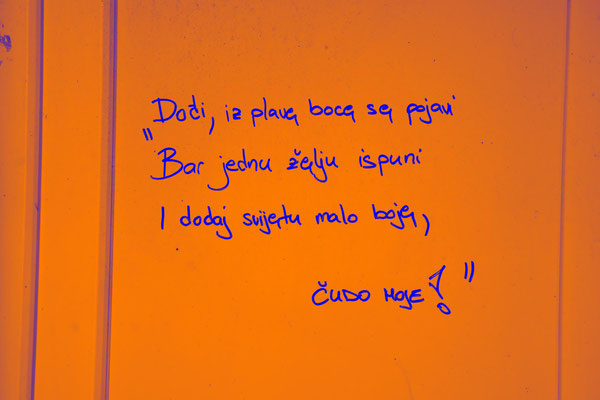 "Dođi, iz plave boce se pojavi
Bar jednu želju ispuni
I dodaj svijetu malo boje,
ČUDO MOJE!"